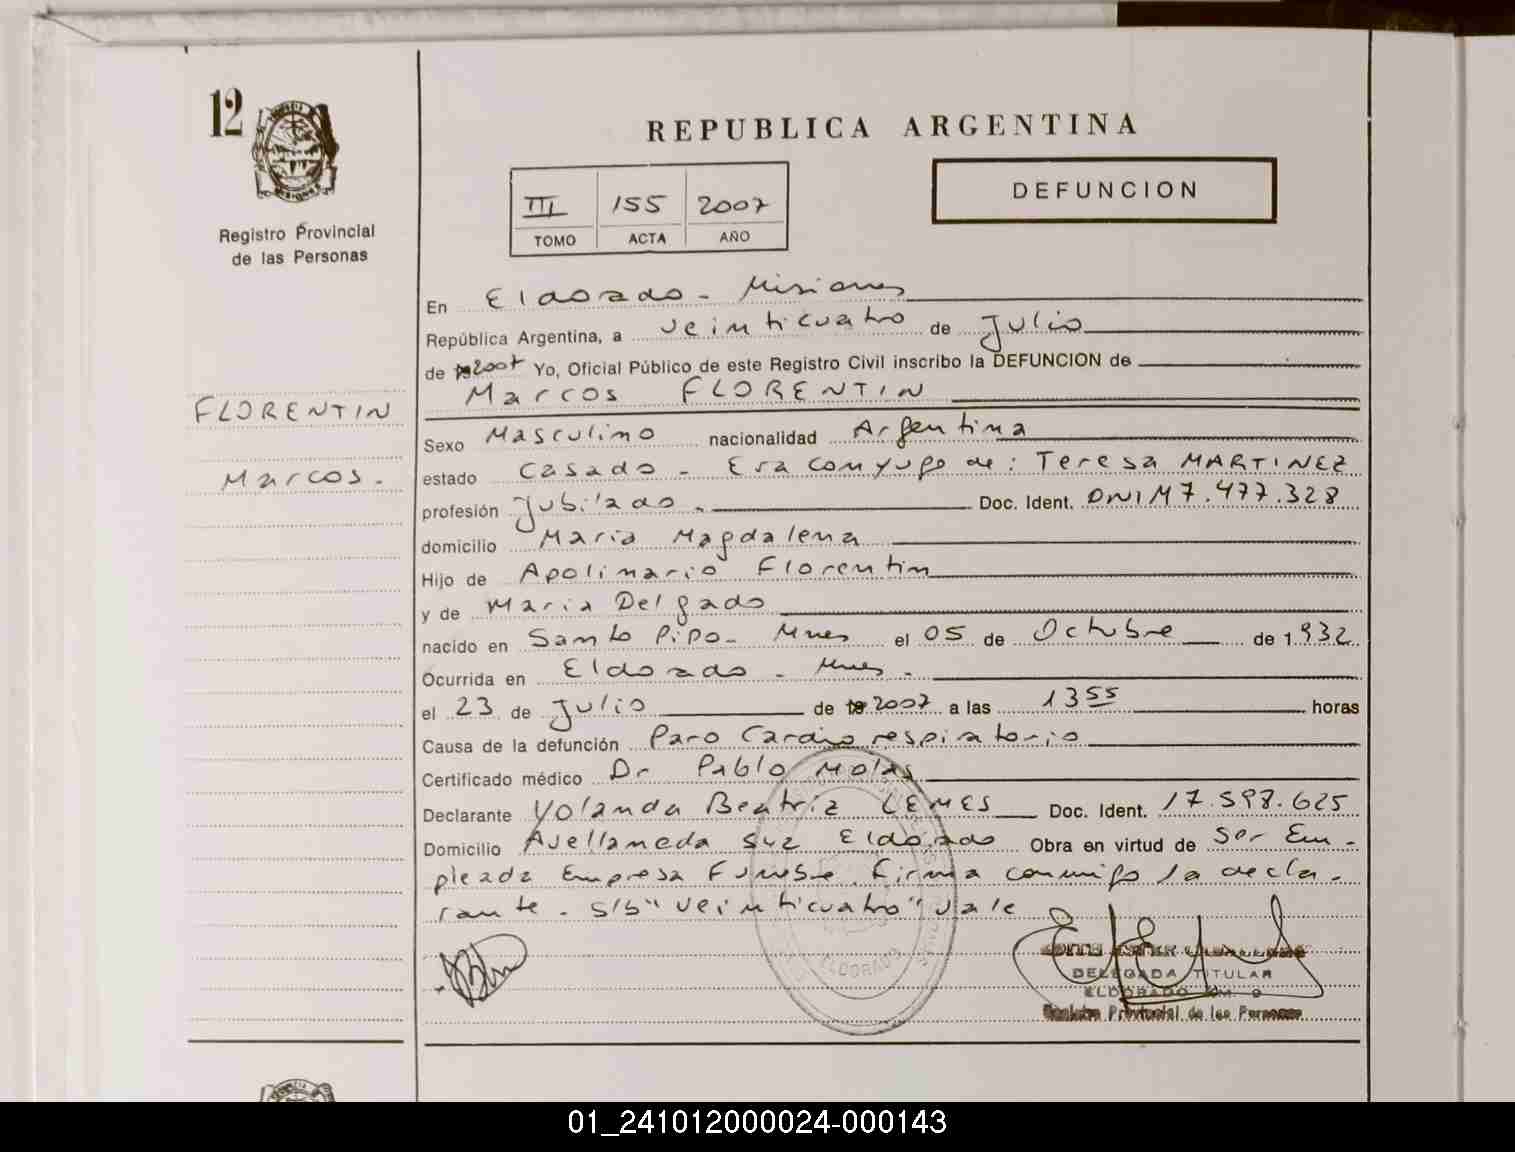 12
REPUBLICA ARGENTINA
DEFUNCION
III 155 2007
TOMO ACTA AÑO
Registro Provincial
de las Personas
En Eldorado - Misiones
República Argentina, a veinticuatro de Julio
de 2007 Yo, Oficial Público de este Registro Civil inscribo la DEFUNCION de
Marcos FLORENTIN
FLORENTIN
Marcos.-
Sexo Masculino nacionalidad Argentina
estado Casado - Era conyuge de: Teresa MARTINEZ
profesión Jubilado.- Doc. Ident. DNI M 7.477.328
domicilio Maria Magdalena
Hijo de Apolinario Florentin
y de Maria Delgado
nacido en Santo Pipo- Mnes el 05 de Octubre de 1.932
Ocurrida en Eldorado - Mnes.-
el 23 de Julio de 2007 a las 13 55 horas
Causa de la defunción Paro Cardio respiratorio
Certificado médico Dr Pablo Molas
Declarante Yolanda Beatriz LEMES Doc. Ident. 17.598.625
Domicilio Avellaneda Eldorado Obra en virtud de Ser Em-
pleada Empresa Funebre. Firma conmigo la decla-
rante - S/b "veinticuatro" vale
ELDORADO
DELEGADA TITULAR
ELDORADO KM. 9
Registro Provincial de las Personas
01_241012000024-000143